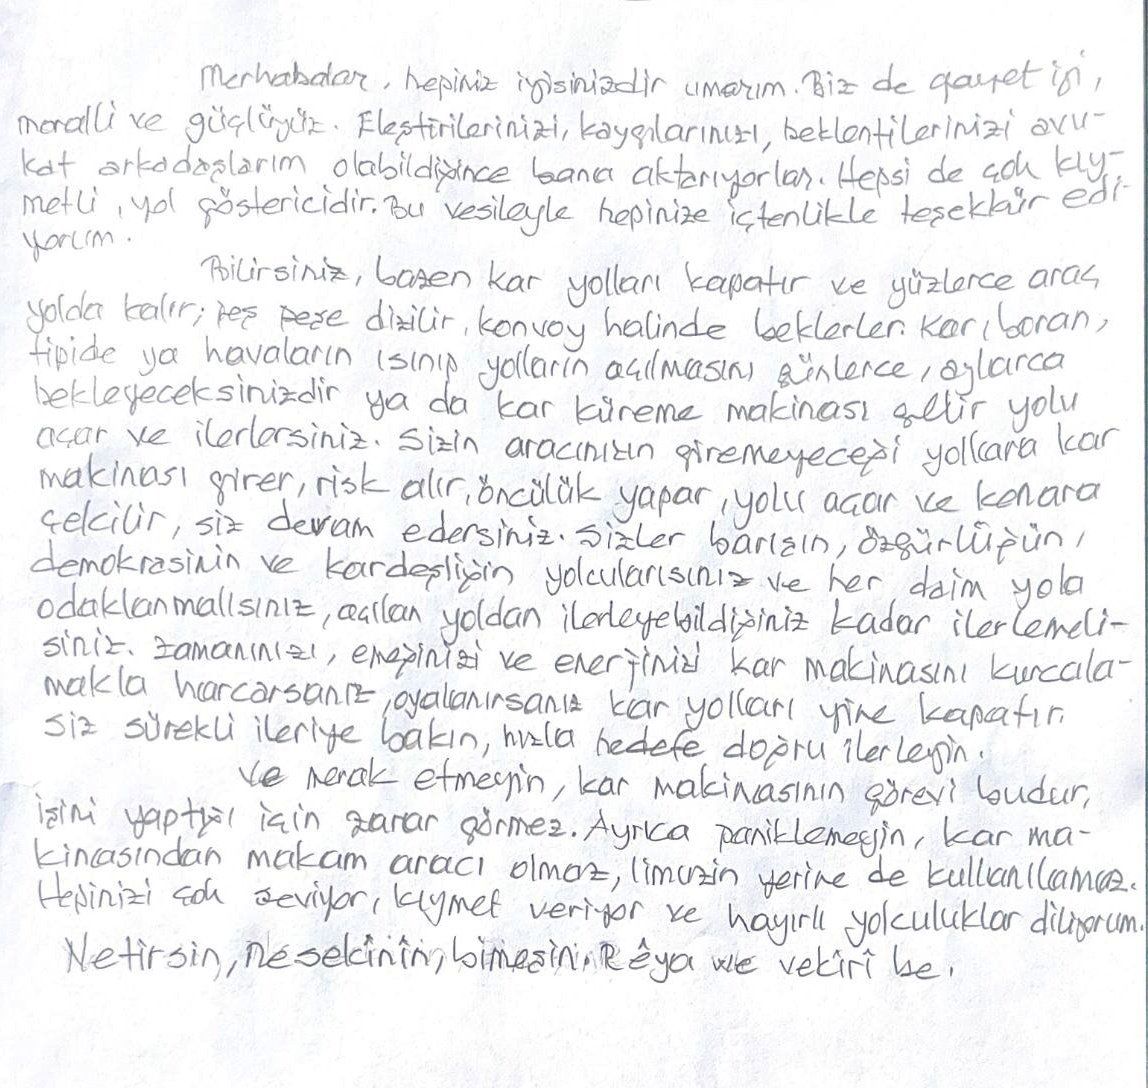 Merhabalar, hepiniz iyisinizdir umarım. Biz de gayet iyi,
moralli ve güçlüyüz. Eleştirilerinizi, kaygılarınızı, beklentilerinizi avu-
kat arkadaşlarım olabildiğince bana aktarıyorlar. Hepsi de çok kıy-
metli, yol göstericidir. Bu vesileyle hepinize içtenlikle teşekkür edi-
yorum.
Bilirsiniz, bazen kar yolları kapatır ve yüzlerce araç
yolda kalır; peş peşe dizilir, konvoy halinde beklerler. Kar, boran,
tipide ya havaların ısınıp yolların açılmasını günlerce, aylarca
bekleyeceksinizdir ya da kar küreme makinası gelir yolu
açar ve ilerlersiniz. Sizin aracınızın giremeyeceği yollara kar
makinası girer, risk alır, öncülük yapar, yolu açar ve kenara
çekilir, siz devam edersiniz. Sizler barışın, özgürlüğün,
demokrasinin ve kardeşliğin yolcularısınız ve her daim yola
odaklanmalısınız, açılan yoldan ilerleyebildiğiniz kadar ilerlemeli-
siniz. Zamanınızı, emeğinizi ve enerjinizi kar makinasını kurcala-
makla harcarsanız, oyalanırsanız kar yolları yine kapatır.
Siz sürekli ileriye bakın, hızla hedefe doğru ilerleyin.
Ve merak etmeyin, kar makinasının görevi budur,
işini yaptığı için zarar görmez. Ayrıca paniklemeyin, kar ma-
kinasından makam aracı olmaz, limuzin yerine de kullanılamaz.
Hepinizi çok seviyor, kıymet veriyor ve hayırlı yolculuklar diliyorum.
Netirsin, nesekînin, bimeşin. Rêya we vekirî be.